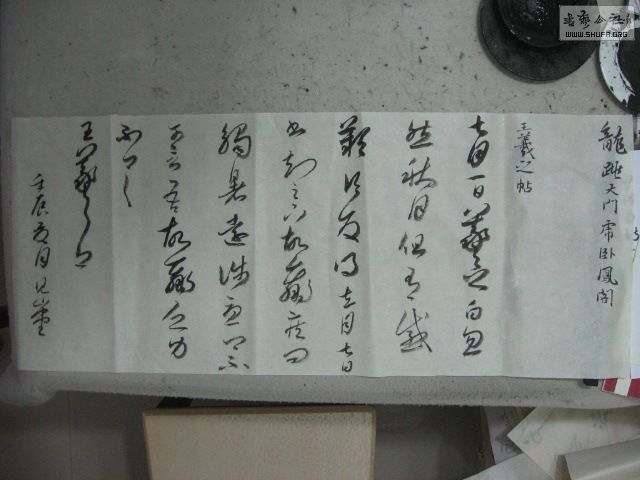 龍跳天門虎卧鳳閣
王羲之帖
七月一日羲之白忽
然秋月但有感
歎信反得去月七日
書知足下故羸疾問
觸暑遠涉憂卿不
可言吾故羸乏力
不具
王羲之白
壬辰夏月
书艺公社
WWW.SHUFA.ORG